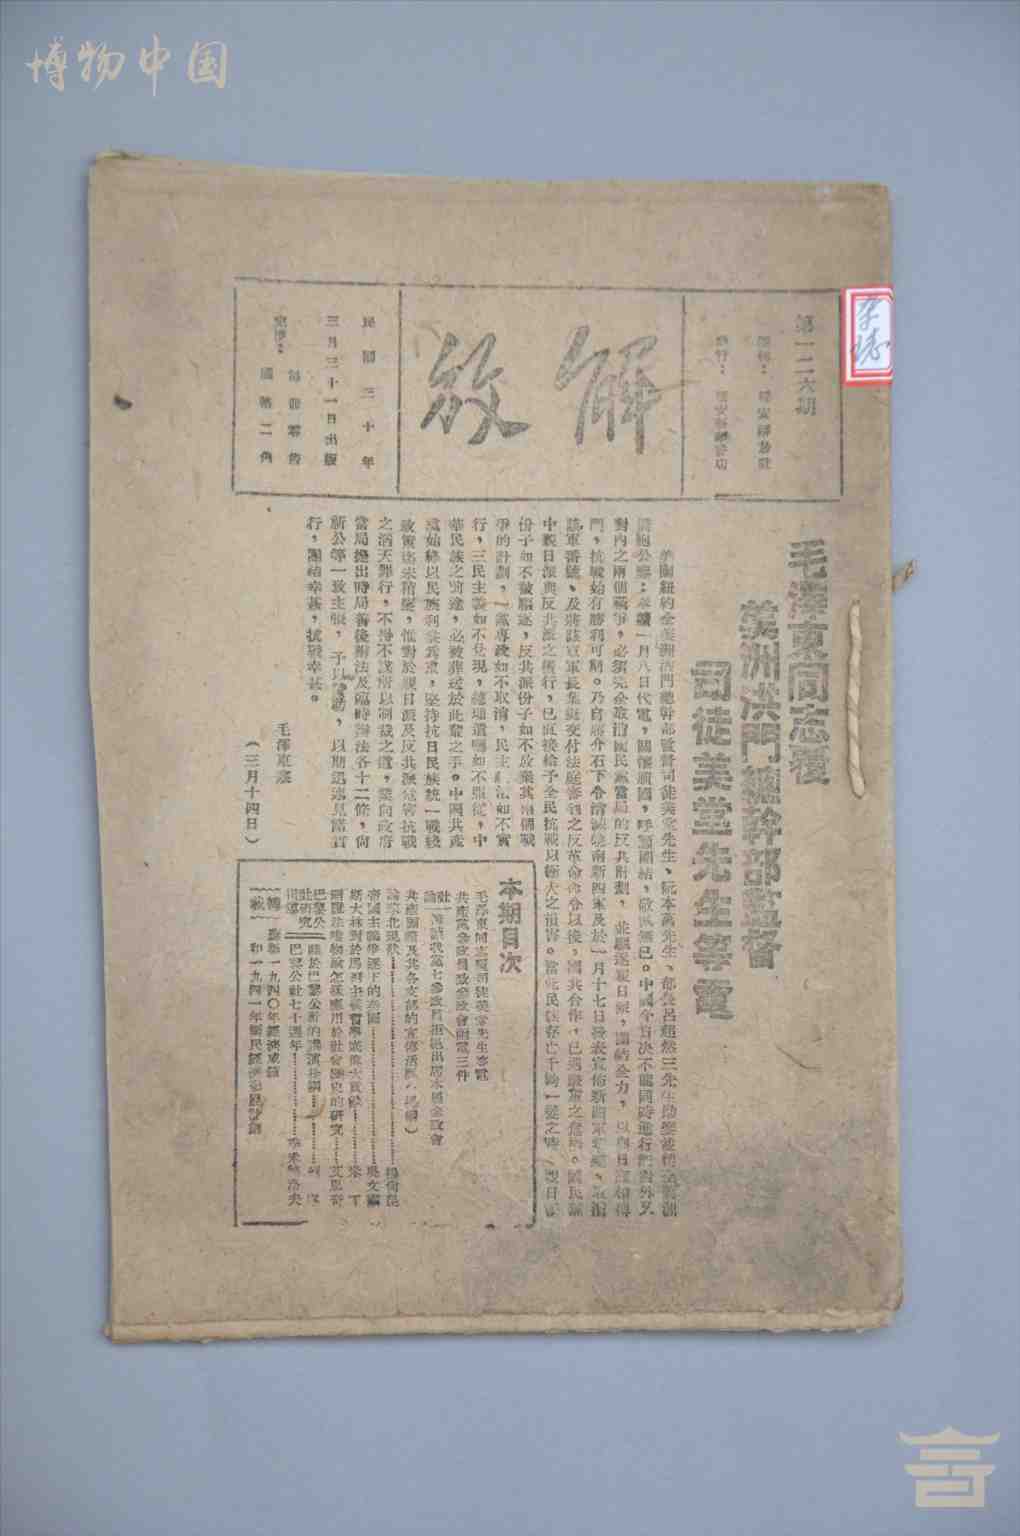 博物中国
第一二六期
解放
民國三十年
三月三十一日出版
定價：
每冊零售
國幣二角
杂志
毛澤東同志覆
美洲洪門總幹部監督
司徒美堂先生等電
美國紐約全美洲洪門總幹部監督司徒美堂先生、阮本萬先生、部長呂超然三先生
對內之兩個戰爭，必須完全取消國民黨當局的反共計劃，並驅逐親日派，團結全力，以與日寇相搏
鬥，抗戰始有勝利可期。乃自蔣介石下令消滅皖南新四軍及於一月十七日發表宣佈新四軍叛變、取消
該軍番號、及將該軍軍長葉挺交付法庭審判之反革命命令以後，國共合作，已遇嚴重之危機。國民黨
中親日派與反共派之罪行，已直接給予全民抗戰以極大之損害。當此民族存亡千鈞一髮之時，親日派
份子如不被驅逐，反共派份子如不放棄其兩個戰
爭的計劃，一黨專政如不取消，民主政治如不實
行，三民主義如不兌現，總理遺囑如不服從，中
華民族之前途，必被葬送於此輩之手。中國共產
黨始終以民族利益為重，堅持抗日民族統一戰綫
政策迄未稍變，惟對於親日派及反共派危害抗戰
之滔天罪行，不得不謀所以制裁之道，業向政府
當局提出時局善後辦法及臨時辦法各十二條，尚
新公等一致主張，予以贊助，以期迅速見諸實
行，團結幸甚，抗戰幸甚。
毛澤東
（三月十四日）
本期目次
毛澤東同志覆司徒美堂先生等電
共產黨參政員致參政會副電三件
社論
共產國際及其各支部的宣傳活動
論華北現狀……楊尚昆
帝國主義準逐下的泰國……吳文燾
斯大林對於馬列主義哲學底偉大貢獻……柴
辯證法唯物論怎樣應用於社會歷史的研究……艾思奇
巴黎公社研究
關於巴黎公社的講演提綱……列寧
巴黎公社七十週年……季米特洛夫
轉載
蘇聯一九四〇年經濟成績
和一九四一年國民經濟發展計劃